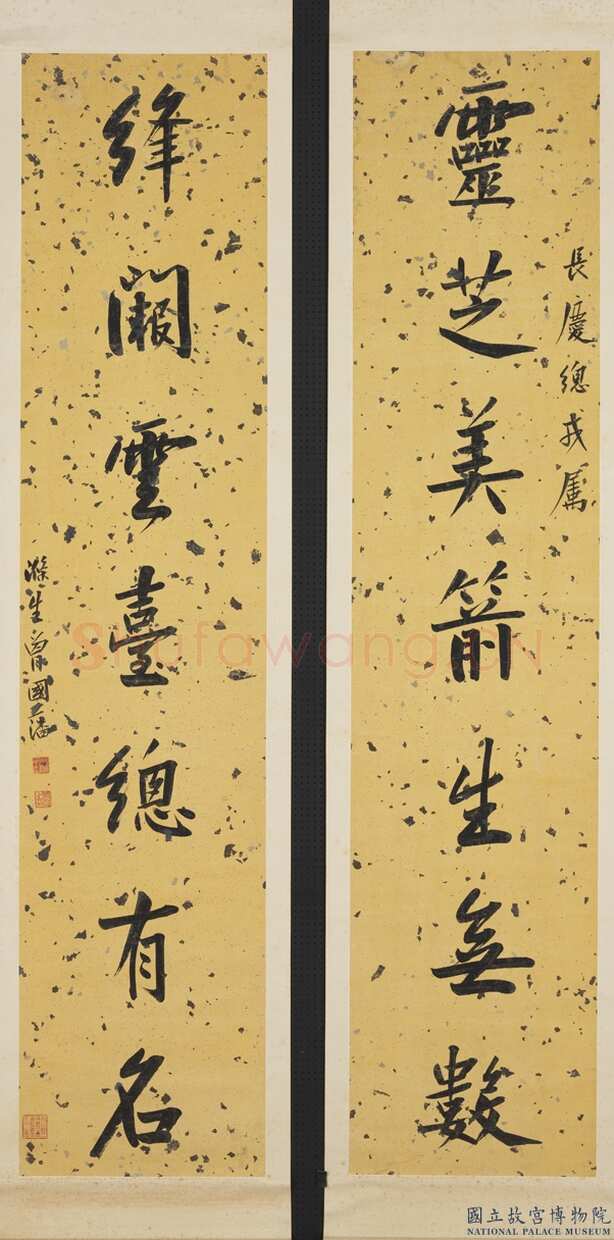 長慶總戎属
靈芝美箭生無數
絳闕雲臺總有名
滌生曾國藩
Shufawang.CN
國立故宮博物院
NATIONAL PALACE MUSEUM